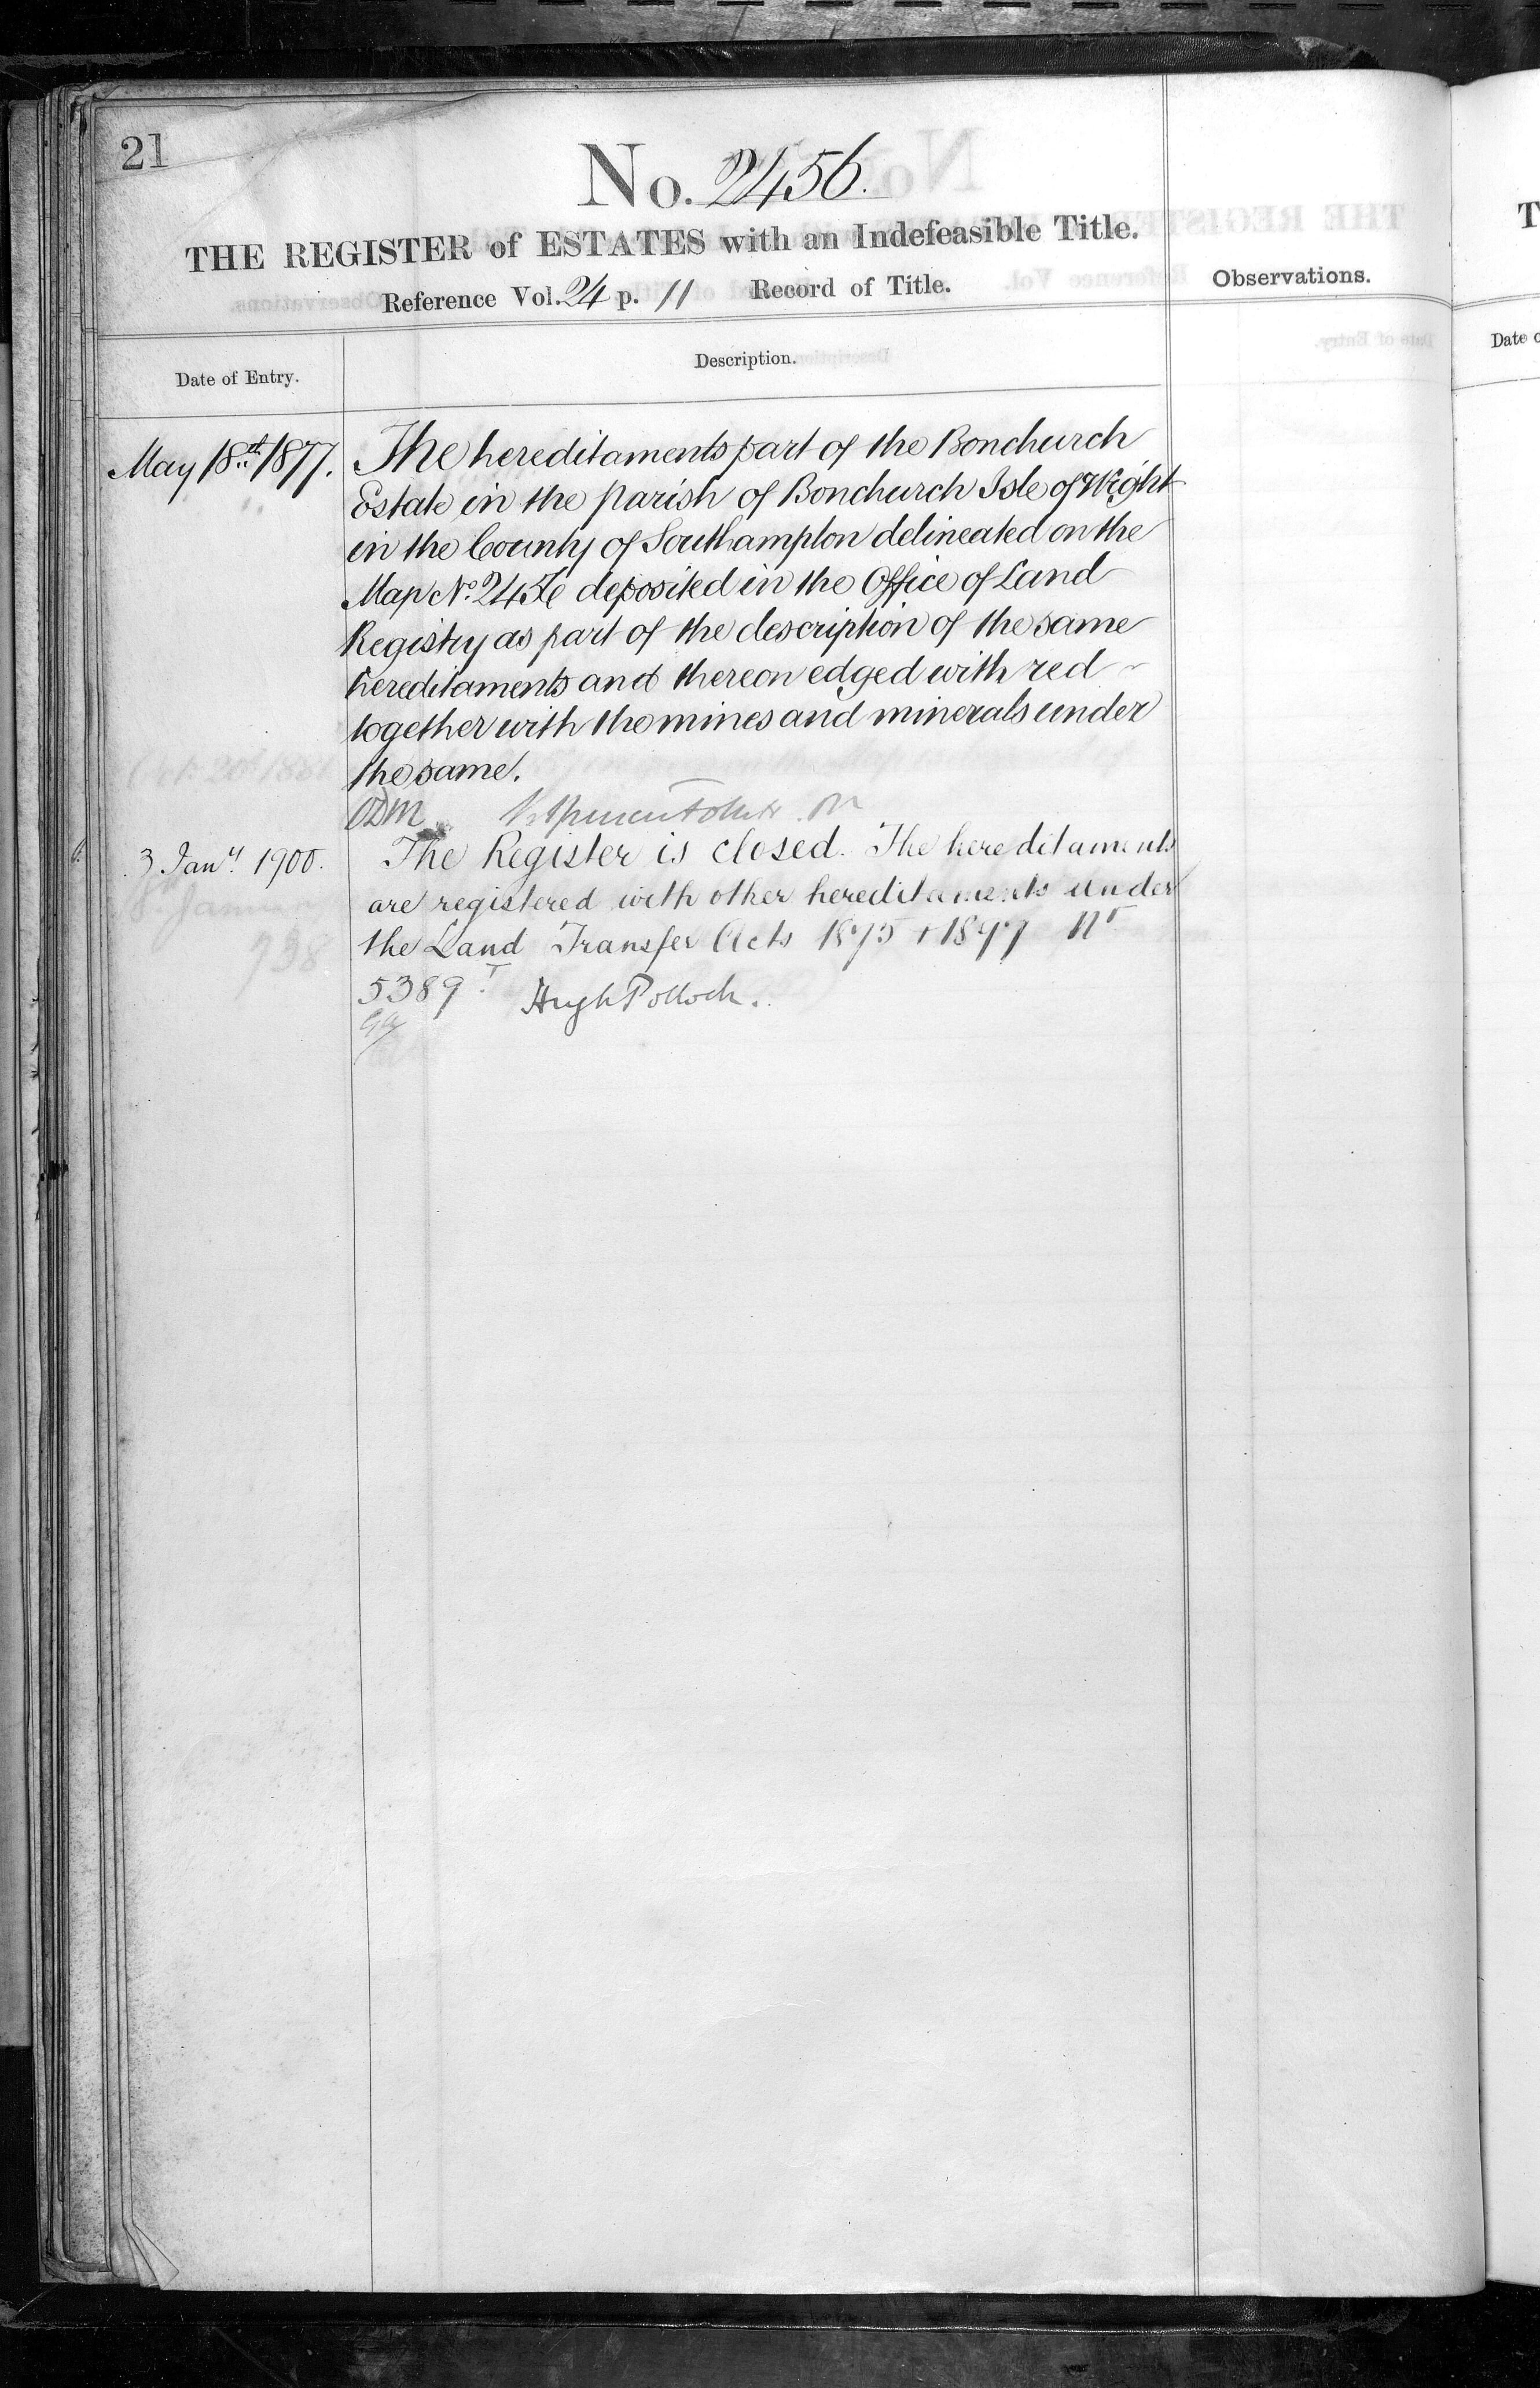 21
No. 2456.
THE REGISTER of ESTATES with an Indefeasible Title.
Reference Vol. 24 p. 11 Record of Title.
Observations.
Date of Entry.
Description.
May 18th 1877.
The hereditaments part of the Bonchurch
Estate in the parish of Bonchurch Isle of Wight
in the County of Southampton delineated on the
Map No. 2456 deposited in the Office of Land
Registry as part of the description of the same
hereditaments and thereon edged with red
together with the mines and minerals under
the same.
3 Jany. 1900.
The Register is closed. The hereditaments
are registered with other hereditaments under
the Land Transfer Acts 1875 + 1897
5389
Hugh Pollock.